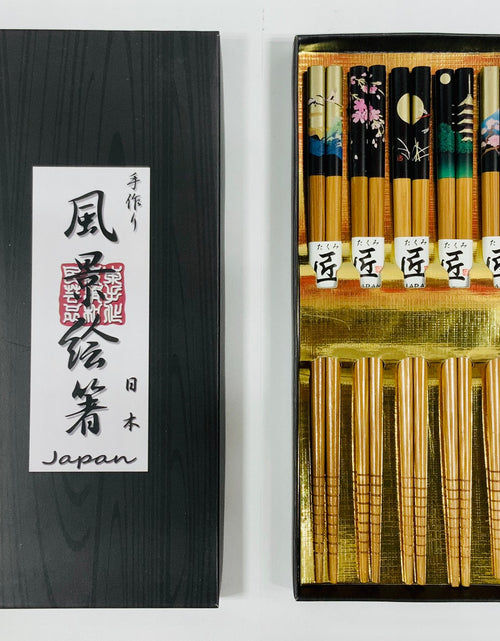 手作り
風景絵箸
日本
Japan
たくみ
匠
JAPAN
たくみ
匠
たくみ
匠
JAPAN
たくみ
匠
たくみ
匠